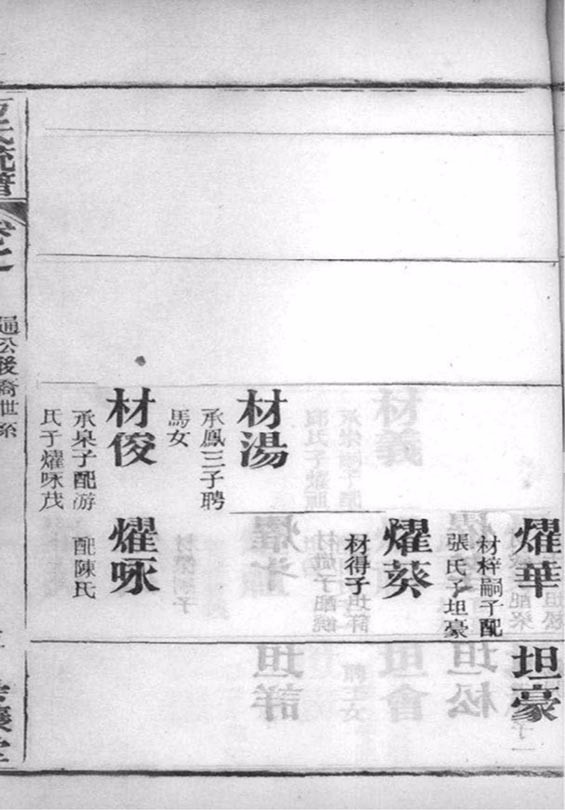 燿華
材梓嗣子配
張氏子坦豪
坦豪
燿葵
材得子
材湯
承鳳三子聘
馬女
材俊
承泉子配游
氏子燿啄茂
燿啄
配陳氏
氏流譜
卷之
通公後裔世系